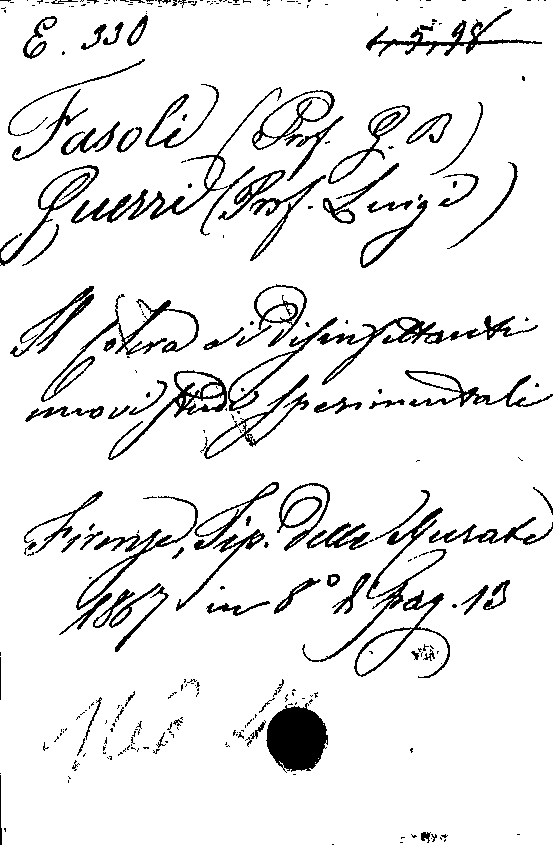 E. 330
4,5,98
Fasoli (Prof. G. B)
Guerri (Prof. Luigi)
Il Colera e i Disinfettanti
nuovi studi sperimentali
Firenze, Tip. delle Murate
1867 in 8° di pag. 13
Med